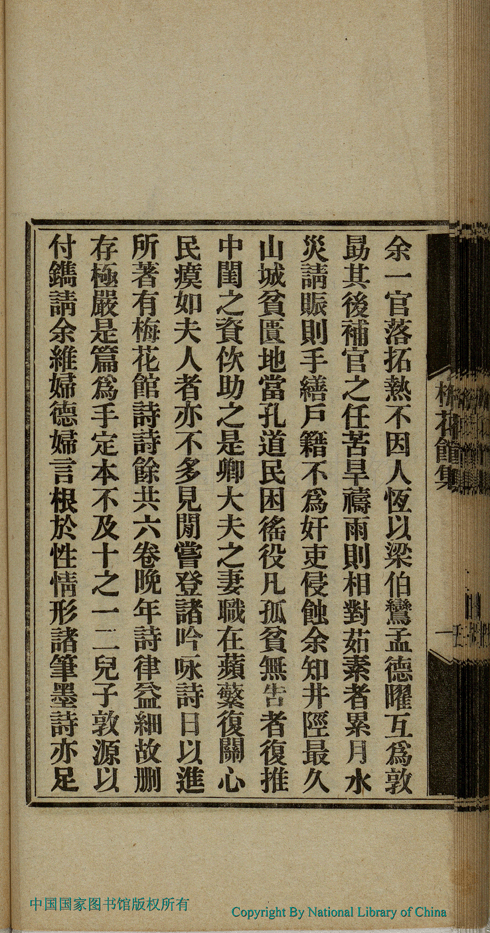 余一官落拓熱不因人恆以梁伯鸞孟德曜互爲敦
勗其後補官之任苦旱禱雨則相對茹素者累月水
災請賑則手繕戶籍不爲奸吏侵蝕余知井陘最久
山城貧匱地當孔道民困徭役凡孤貧無告者復推
中閨之資佽助之是卿大夫之妻職在蘋蘩復關心
民瘼如夫人者亦不多見閒嘗登諸吟咏詩日以進
所著有梅花館詩詩餘共六卷晚年詩律益細故删
存極嚴是篇爲手定本不及十之一二兒子敦源以
付鐫請余維婦德婦言根於性情形諸筆墨詩亦足
梅花館集
中国国家图书馆版权所有
Copyright By National Library of China